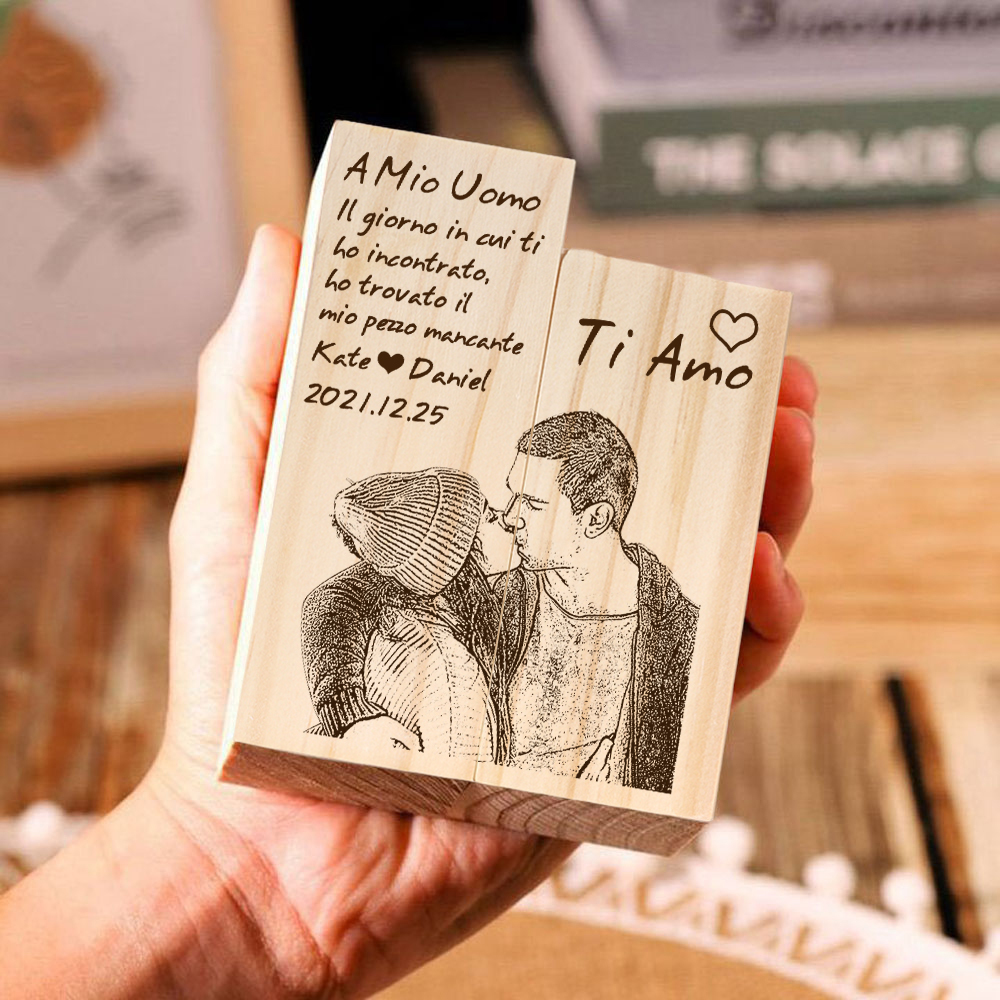 A Mio Uomo
Il giorno in cui ti
ho incontrato,
ho trovato il
mio pezzo mancante
Kate ♥ Daniel
2021.12.25
Ti Amo ♡
THE SOLACE